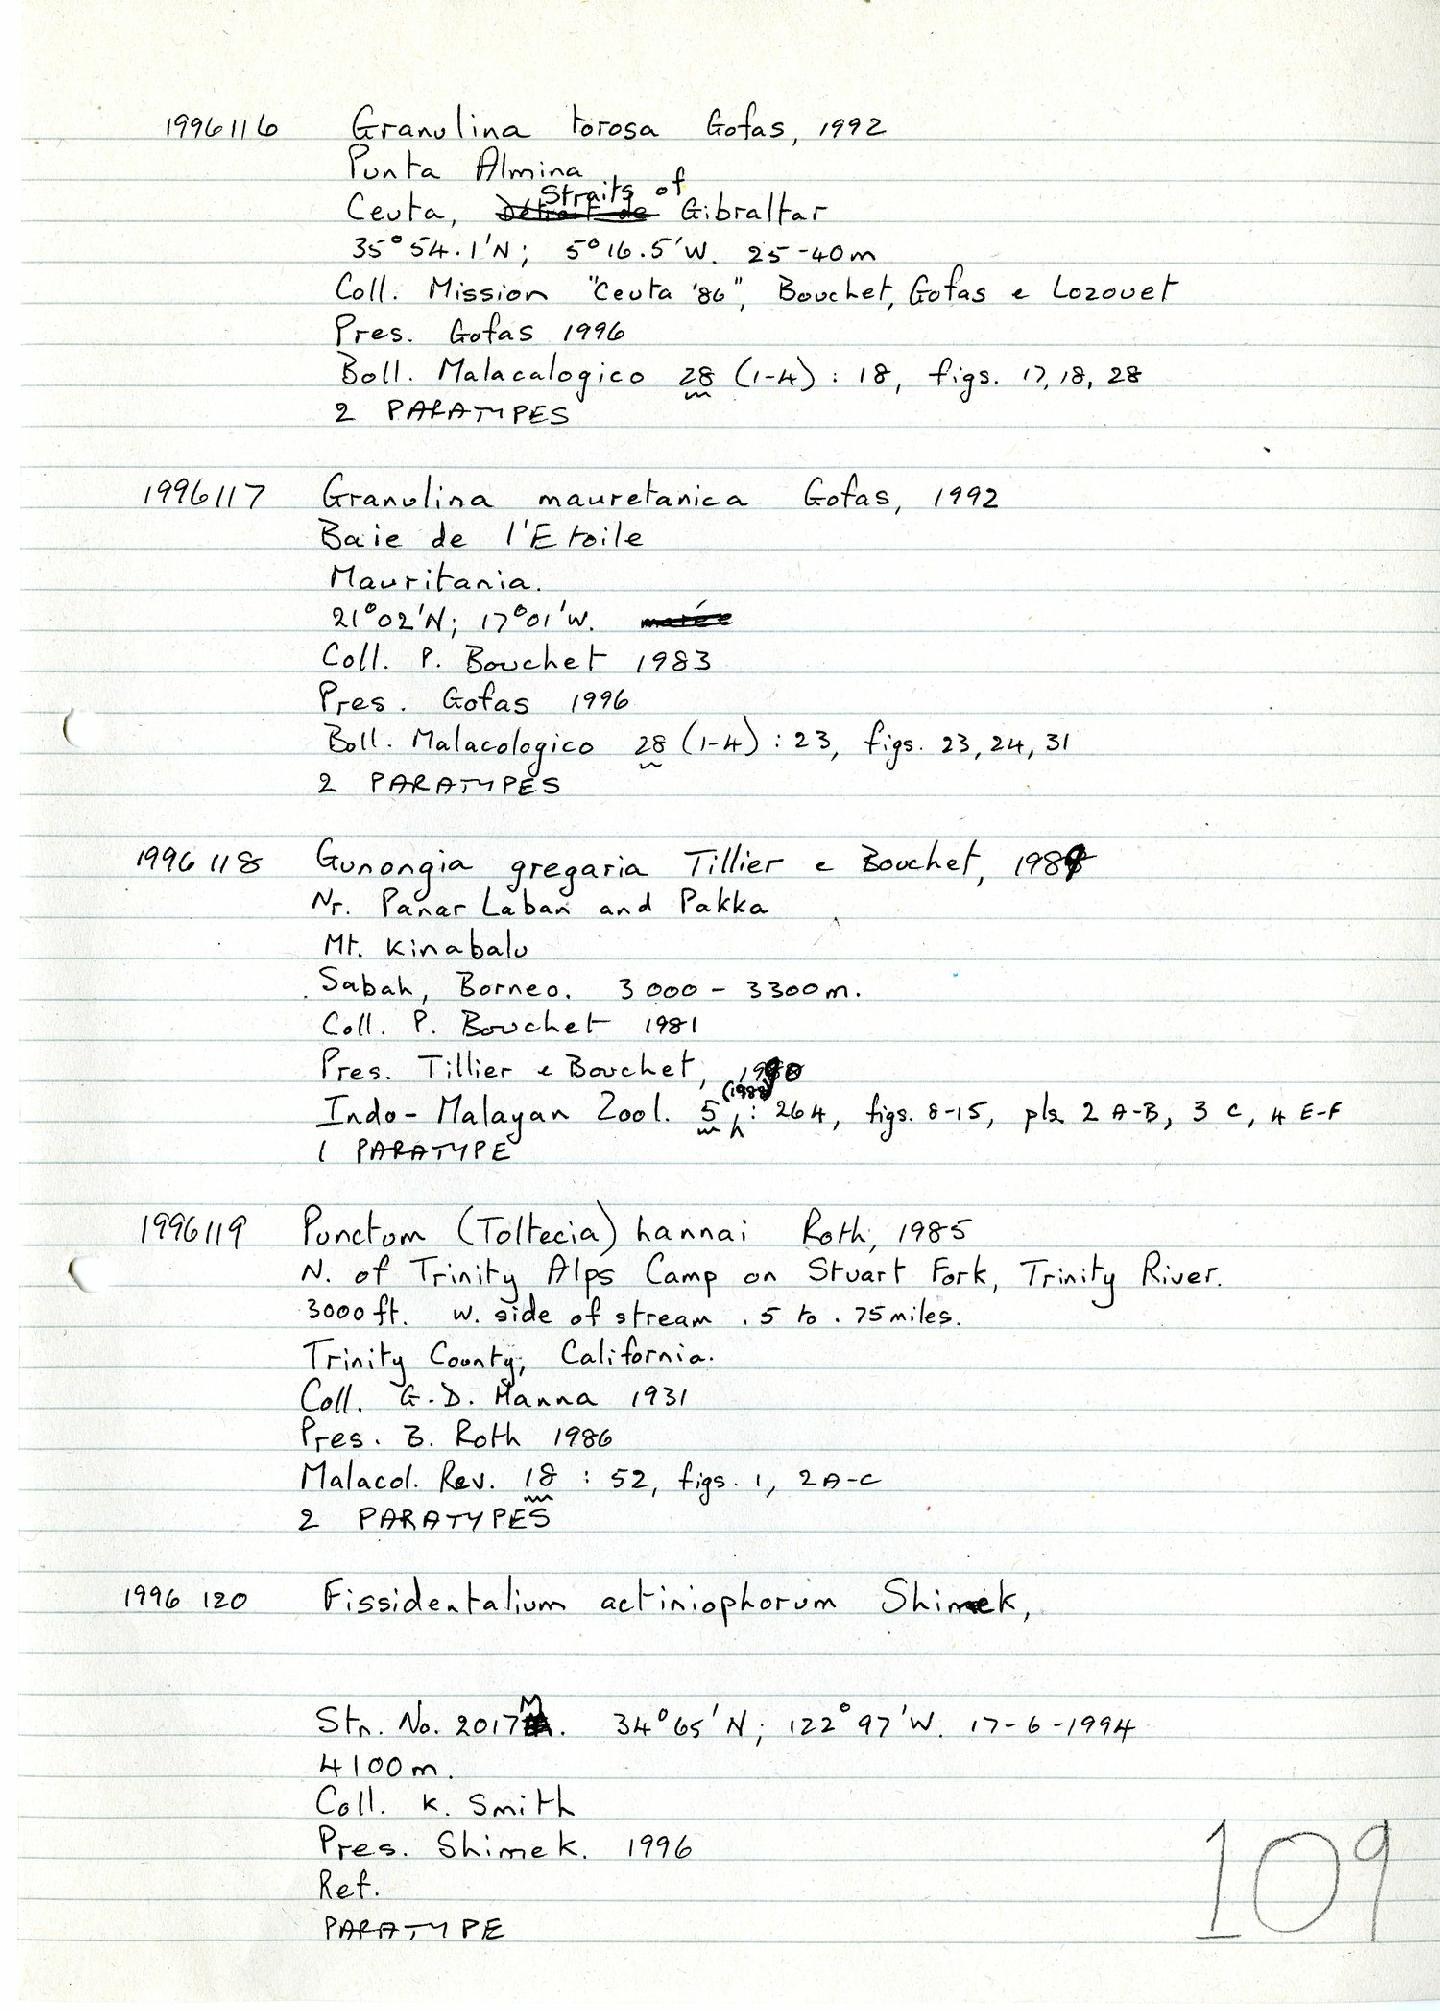 1996116 Granulina torosa Gofas, 1992
Punta Almina
Straits of
Ceuta, Détroit de Gibraltar
35°54.1'N; 5°16.5'W. 25-40m
Coll. Mission "Ceuta '86", Bouchet, Gofas e Lozouet
Pres. Gofas 1996
Boll. Malacalogico 28 (1-4) : 18, figs. 17, 18, 28
2 PARATYPES
1996117 Granulina mauretanica Gofas, 1992
Baie de l'Etoile
Mauritania.
21°02'N; 17°01'W. marée
Coll. P. Bouchet 1983
Pres. Gofas 1996
Boll. Malacologico 28 (1-4) : 23, figs. 23, 24, 31
2 PARATYPES
1996 118 Gunongia gregaria Tillier e Bouchet,
Nr. Panar Laban and Pakka
Mt. Kinabalu
Sabah, Borneo. 3000 - 3300m.
Coll. P. Bouchet 1981
Pres. Tillier e Bouchet,
(1988)
Indo-Malayan Zool. 5 : 264, figs. 8-15, pls 2 A-B, 3 C, 4 E-F
1 PARATYPE
1996119 Punctum (Toltecia) hannai Roth, 1985
N. of Trinity Alps Camp on Stuart Fork, Trinity River.
3000 ft. W. side of stream .5 to .75 miles.
Trinity County, California.
Coll. G.D. Hanna 1931
Pres. B. Roth 1986
Malacol. Rev. 18 : 52, figs. 1, 2A-C
2 PARATYPES
1996 120 Fissidentalium actiniophorum Shimek,
Stn. No. 2017 M. 34°65'N; 122°97'W. 17-6-1994
4100m.
Coll. K. Smith
Pres. Shimek. 1996
Ref.
PARATYPE
109